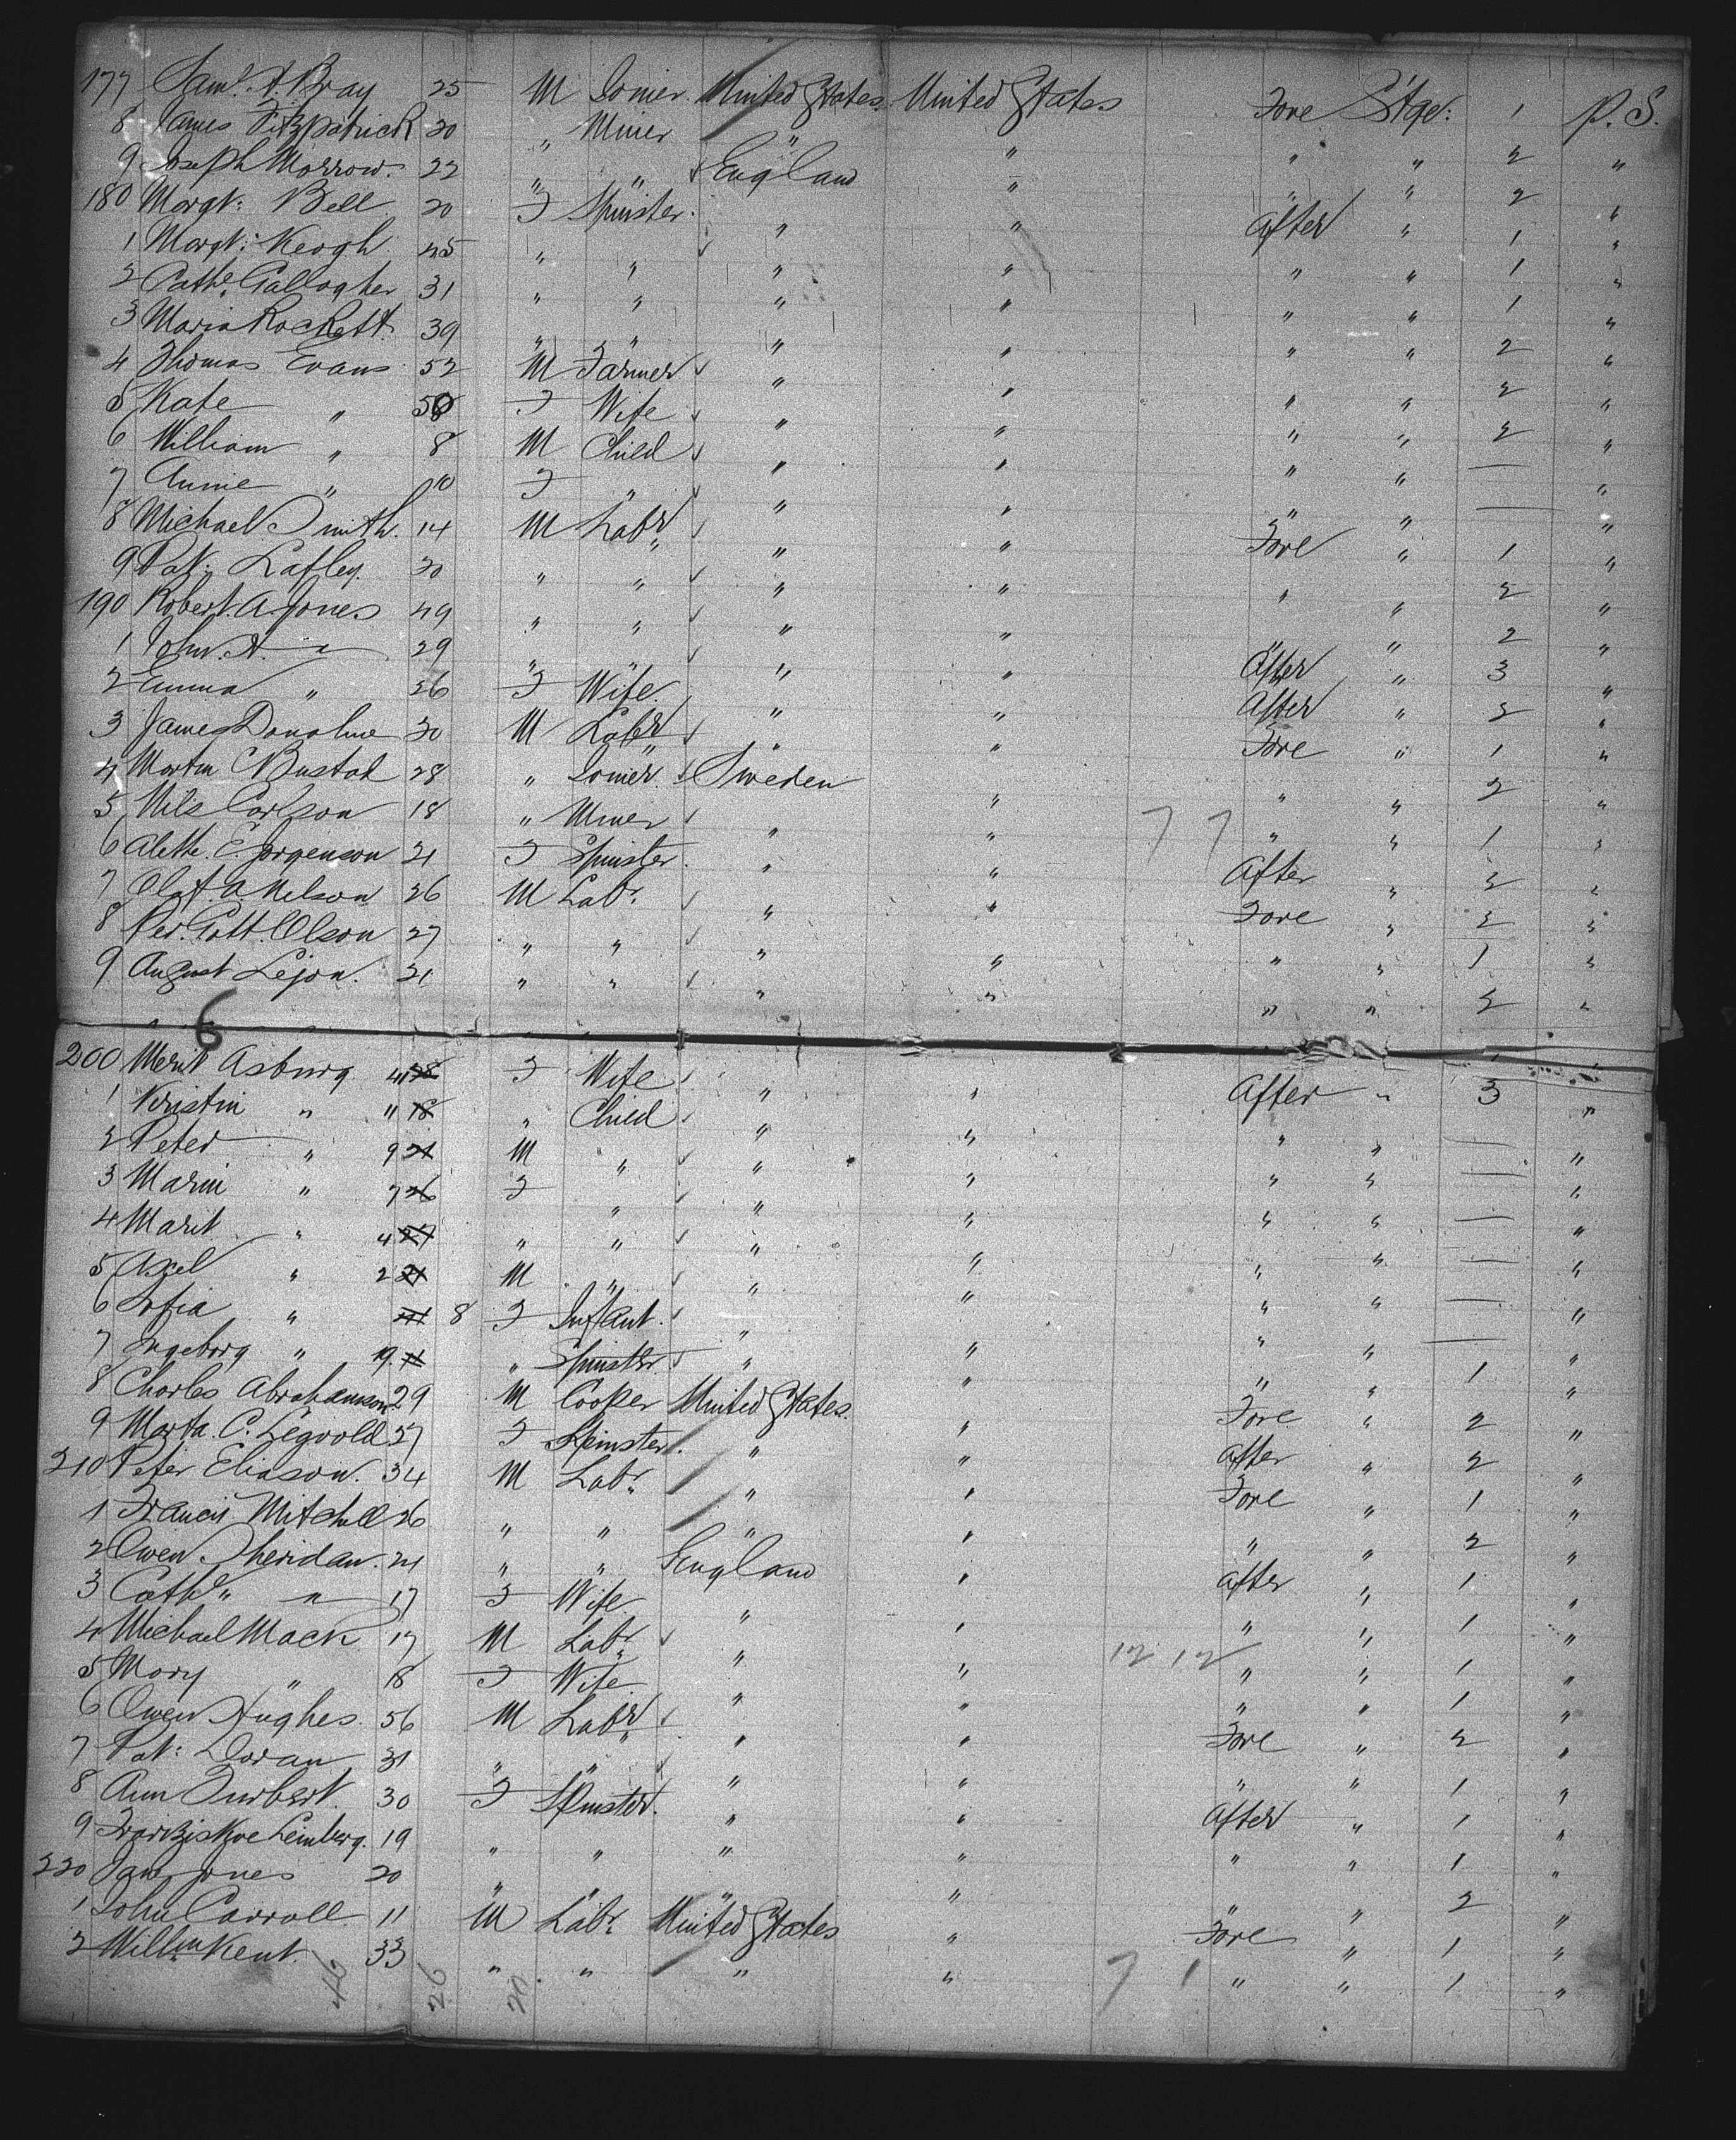 177 Saml. A. Bray 25 M Joiner. United States United States Fore Stge: 1 P. S.
8 James Fitzpatrick 30 " Miner " " " " 2 "
9 Joseph Morrow. 22 " " England " " " 2 "
180 Margt: Bell 20 F Spinster. " " After " 1 "
1 Margt: Keogh 45 " " " " " " 1 "
2 Cathe. Gallagher 31 " " " " " " 1 "
3 Maria Rockett. 39 " " " " " " 2 "
4 Thomas Evans 52 M Farmer " " " " 2 "
5 Kate " 50 F Wife " " " " 2 "
6 William " 8 M Child " " " " — "
7 Annie " 10 F " " " " " — "
8 Michael Smith. 14 M Labr. " " Fore " 1 "
9 Pat: Lafley. 20 " " " " " " 2 "
190 Robert. A. Jones 49 " " " " " " 2 "
1 John. A. " 29 " " " " After " 3 "
2 Emma " 26 F Wife. " " After " 2 "
3 James Donohue 30 M Labr. " " Fore " 1 "
4 Martin C Bustad 28 " Joiner. Sweden " " " 2 "
5 Nils Carlson 18 " Miner " " 7 7 " " 1 "
6 Alette. C. Jorgenson 21 F Spinster. " " After " 2 "
7 Olaf. A. Nelson 26 M Labr. " " Fore " 2 "
8 Per. Gott. Olson 27 " " " " " " 1 "
9 August Lejon. 21 " " " " " " 2 "
6
200 Merit Asburg 41 28 F Wife " " After " 3 "
1 Kristin " 11 18 " Child " " " " — "
2 Peter " 9 21 M " " " " " — "
3 Marin " 7 26 F " " " " " — "
4 Marit " 4 27 " " " " " " — "
5 Axel " 2 21 M " " " " " — "
6 Sofia " 8 F Infant. " " " " — "
7 Ingeborg " 19 " Spinster " " " " 1 "
8 Charles Abrahamson 29 M Cooper United States. " Fore " 2 "
9 Marta. C. Legvold 27 F Spinster. " " After " 2 "
210 Peter Eliason. 34 M Labr. " " Fore " 1 "
1 Francis Mitchell 26 " " " " " " 2 "
2 Owen Sheridan. 21 " " England " After " 1 "
3 Cathe. " 17 F Wife " " " " 1 "
4 Michael Mack 17 M Labr. " " 12 12 " " 1 "
5 Mary " 18 F Wife. " " " " 1 "
6 Owen Hughes. 56 M Labr. " " Fore " 2 "
7 Pat: Doran 31 " " " " " " 1 "
8 Ann Turbert. 30 F Spinster. " " After " 1 "
9 Leinberg. 19 " " " " " " 1 "
220 Jane Jones 20 " " " " " " 2 "
1 John Carroll. 11 M Labr. United States " Fore " 1 "
2 Willm Kent. 33 " " " " 7 1 " " 1 "
46 26 20